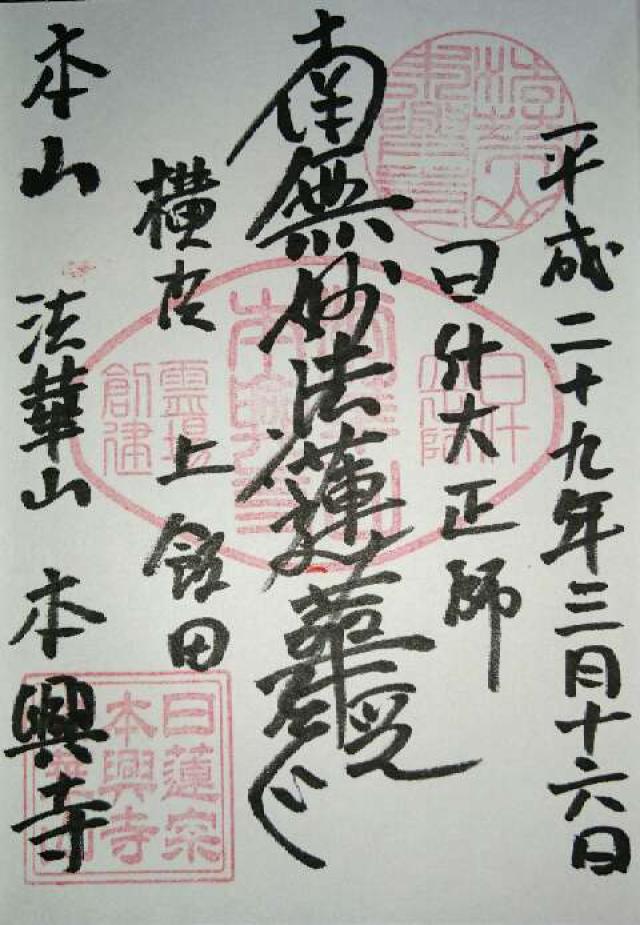 平成二十九年三月十六日
日什大正師
南無妙法蓮華経
横浜 上飯田
本山 法華山 本興寺
法華山
本興寺
日什
霊場
創建
日蓮宗
本興寺